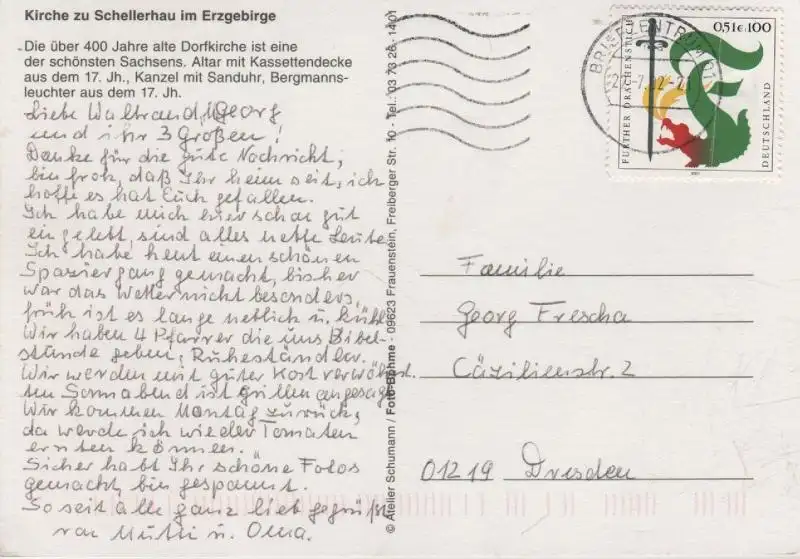 Kirche zu Schellerhau im Erzgebirge
Die über 400 Jahre alte Dorfkirche ist eine
der schönsten Sachsens. Altar mit Kassettendecke
aus dem 17. Jh., Kanzel mit Sanduhr, Bergmanns-
leuchter aus dem 17. Jh.
Liebe Waltraud, Georg
und ihr 3 Großen!
Danke für die gute Nachricht,
bin froh, daß Ihr heim seit, ich
hoffe es hat Euch gefallen.
Ich habe mich hier schon gut
ein gelebt, sind alles nette Leute
Ich habe heut einen schönen
Spaziergang gemacht, bis her
war das Wetter nicht besonders,
früh ist es lange neblich u. kühl.
Wir haben 4 Pfarrer die uns Bibel-
stunde geben, Ruheständler.
Wir werden mit guter Kost verwöhnt.
Sonnabend ist Grillen angesagt
Wir kommen Montag zurück,
da werde ich wieder Tomaten
ernten können.
Sicher habt Ihr schöne Fotos
gemacht bin gespannt.
So seit alle ganz lieb gegrüßt
von Mutti u. Oma.
© Atelier Schumann / Foto-Böhme - 09623 Frauenstein, Freiberger Str. 10 - Tel.: 03 73 26 - 14 01
BRIEFZENTRUM 01
FURTHER DRACHENSTICH
0,51€ 100
DEUTSCHLAND
Familie
Georg Frescha
Cäzilienstr. 2
01219 Dresden